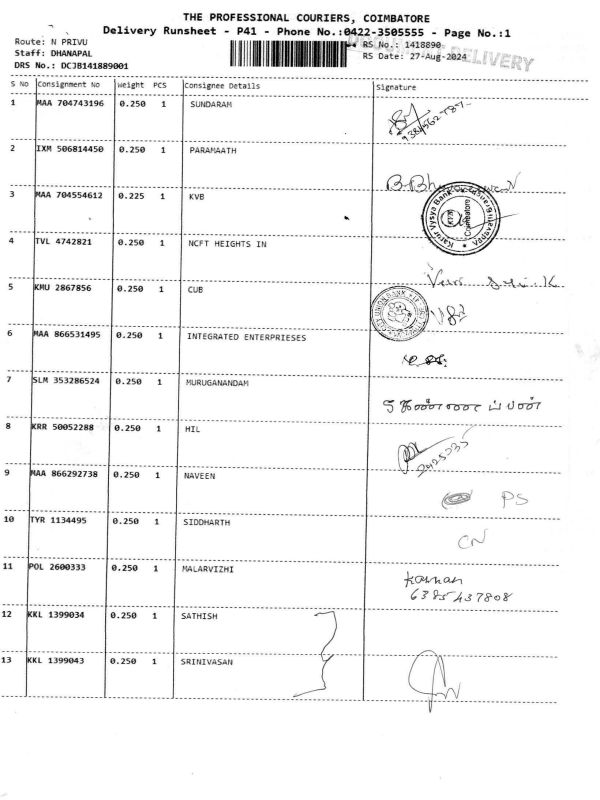 THE PROFESSIONAL COURIERS, COIMBATORE
Delivery Runsheet - P41 - Phone No.:0422-3505555 - Page No.:1
Route: N PRIVU
RS No.: 1418890
Staff: DHANAPAL
RS Date: 27-Aug-2024
DELIVERY
DRS No.: DCJB141889001
S No Consignment No Weight PCS Consignee Details Signature
1 MAA 704743196 0.250 1 SUNDARAM
2 IXM 506814450 0.250 1 PARAMAATH
3 MAA 704554612 0.225 1 KVB
Karur Vysya Bank
Coimbatore
4 TVL 4742821 0.250 1 NCFT HEIGHTS IN
5 KMU 2867856 0.250 1 CUB
UNION BANK
6 MAA 866531495 0.250 1 INTEGRATED ENTERPRIESES
7 SLM 353286524 0.250 1 MURUGANANDAM
8 KRR 50052288 0.250 1 HIL
9 MAA 866292738 0.250 1 NAVEEN PS
10 TYR 1134495 0.250 1 SIDDHARTH CN
11 POL 2600333 0.250 1 MALARVIZHI
6385437808
12 KKL 1399034 0.250 1 SATHISH
13 KKL 1399043 0.250 1 SRINIVASAN